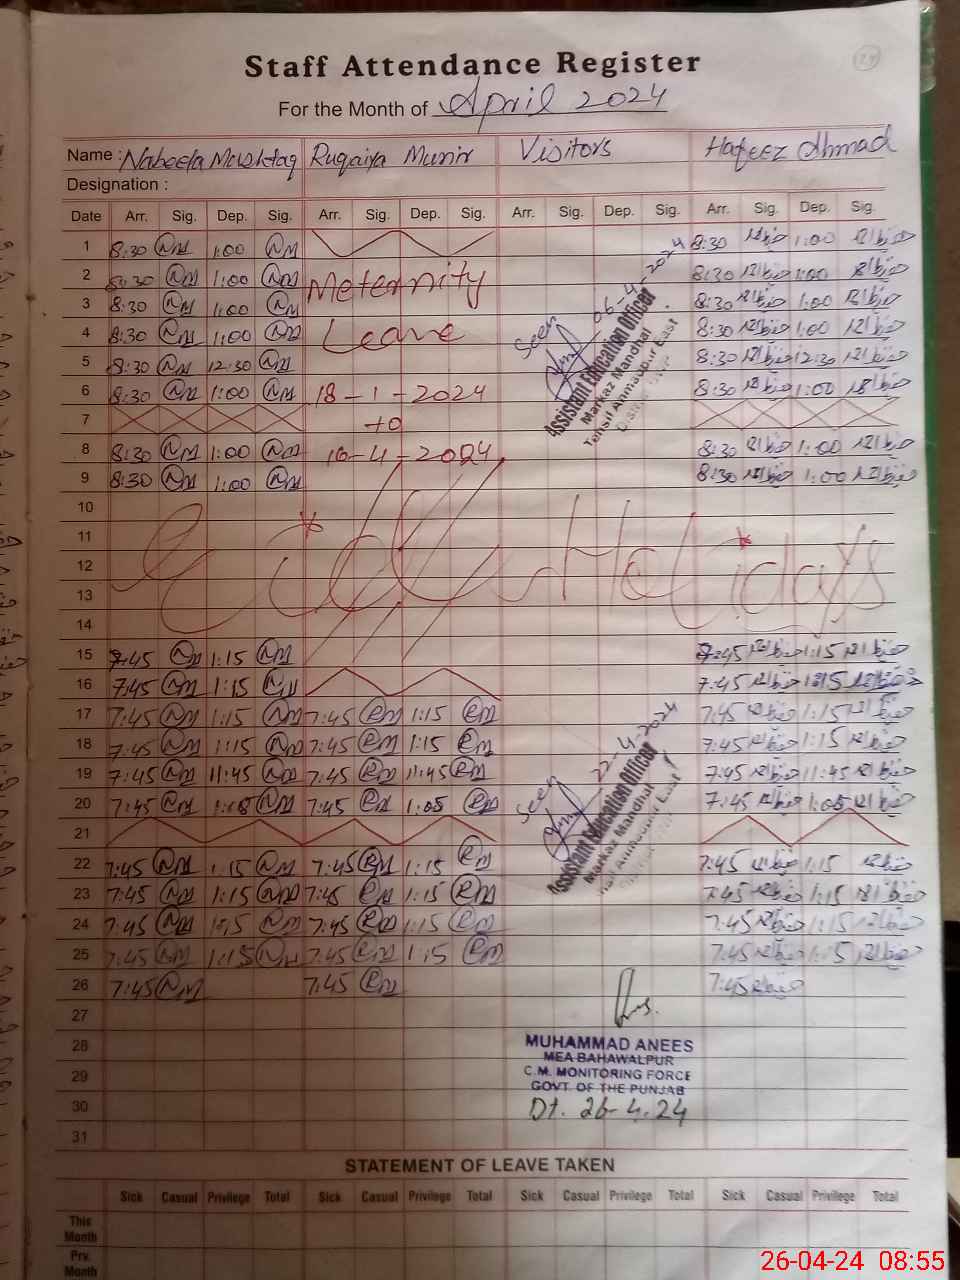 Staff Attendance Register
For the Month of April 2024
Name : Nabeela Mushtaq Ruqaiya Munir Visitors Hafeez Ahmad
Designation :
Date Arr. Sig. Dep. Sig. Arr. Sig. Dep. Sig. Arr. Sig. Dep. Sig. Arr. Sig. Dep. Sig.
1 8:30 NM 1:00 NM 8:30 1:00
2 8:30 NM 1:00 NM Meternity 8:30 1:00
3 8:30 NM 1:00 NM 8:30 1:00
4 8:30 NM 1:00 NM Leave 8:30 1:00
5 8:30 NM 12:30 NM 8:30 12:30
6 8:30 NM 1:00 NM 18-1-2024 8:30 1:00
7 to
8 8:30 NM 1:00 NM 16-4-2024 8:30 1:00
9 8:30 NM 1:00 NM 8:30 1:00
Seen
06-4-2024
Assistant Education Officer
Markaz Mandhal
Tehsil Ahmadpur East
10
11
12 Eid Holidays
13
14
15 7:45 NM 1:15 NM 7:45 1:15
16 7:45 NM 1:15 NM 7:45 1:15
17 7:45 NM 1:15 NM 7:45 RM 1:15 RM 7:45 1:15
18 7:45 NM 1:15 NM 7:45 RM 1:15 RM 7:45 1:15
19 7:45 NM 11:45 NM 7:45 RM 11:45 RM 7:45 11:45
20 7:45 NM 1:08 NM 7:45 RM 1:05 RM 7:45 1:05
21
22 7:45 NM 1:15 NM 7:45 RM 1:15 RM 7:45 1:15
23 7:45 NM 1:15 NM 7:45 RM 1:15 RM 7:45 1:15
24 7:45 NM 1:15 NM 7:45 RM 1:15 RM 7:45 1:15
25 7:45 NM 1:15 NM 7:45 RM 1:15 RM 7:45 1:15
26 7:45 NM 7:45 RM 7:45
Seen
22-4-2024
Assistant Education Officer
Markaz Mandhal
Tehsil Ahmadpur East
27
28
29
30
31
MUHAMMAD ANEES
MEA BAHAWALPUR
C.M. MONITORING FORCE
GOVT. OF THE PUNJAB
Dt. 26-4.24
STATEMENT OF LEAVE TAKEN
Sick Casual Privilege Total Sick Casual Privilege Total Sick Casual Privilege Total Sick Casual Privilege Total
This Month
Prv. Month
26-04-24 08:55